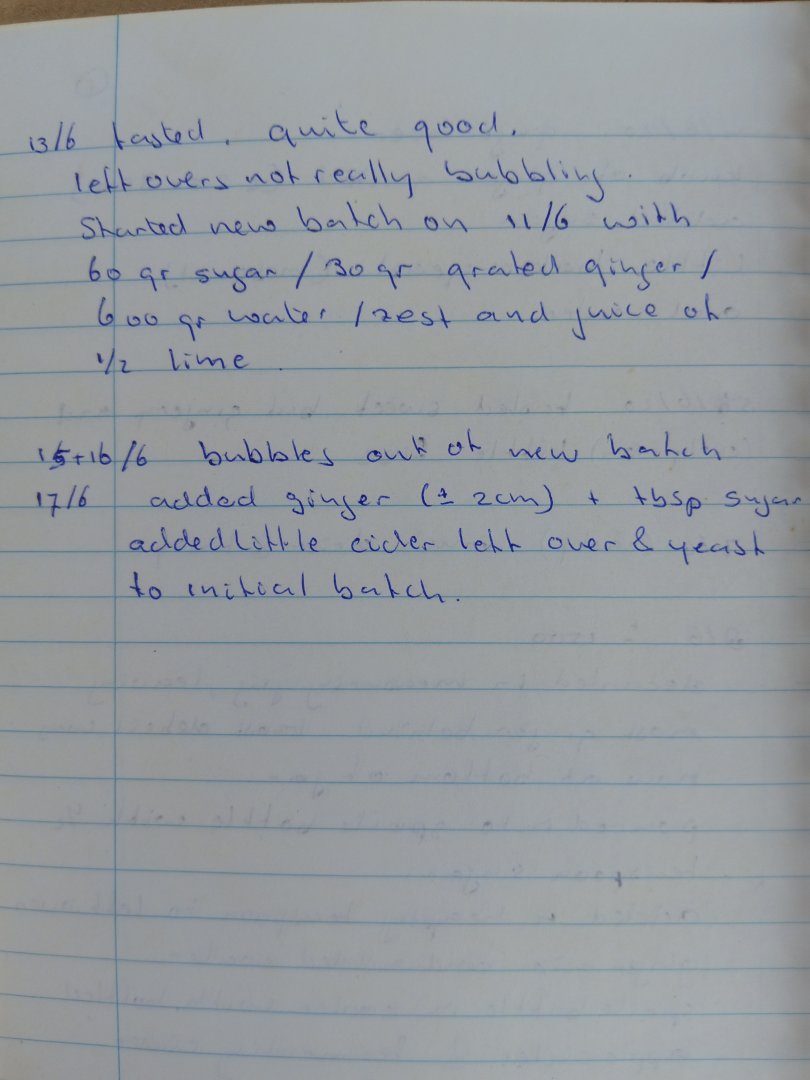 13/6 tasted. quite good.
left overs not really bubbling.
Started new batch on 11/6 with
60 gr sugar / 30 gr grated ginger /
600 gr water / zest and juice of
1/2 lime.
15+16/6 bubbles out of new batch.
17/6 added ginger (± 2cm) + tbsp sugar
added little cider left over & yeast
to initial batch.